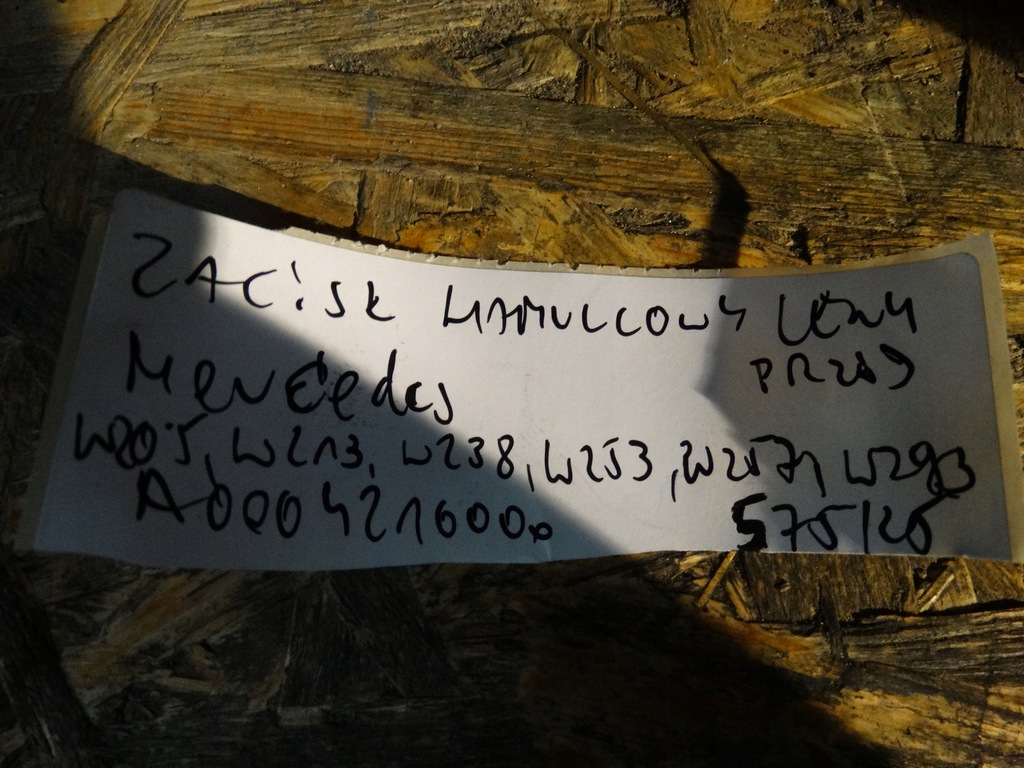 ZACISK HAMULCOWY LEWY
PRZÓD
Mercedes
W205, W213, W238, W253, W257, W293
A0004216000
575/25